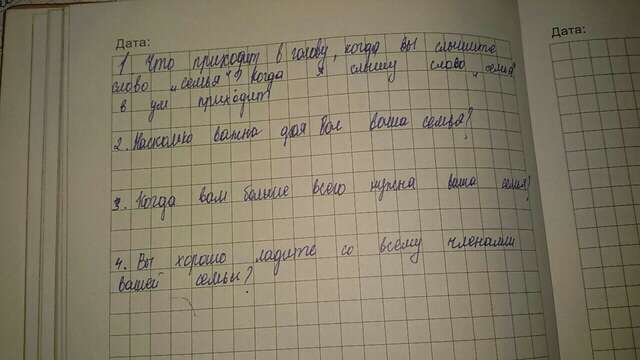 Дата:
Дата:
1 Что приходит в голову, когда вы слышите
слово „семья"? Когда я слышу слово „семья"
в ум приходит
2. Насколько важна для Вас ваша семья?
3. Когда вам больше всего нужна ваша семья?
4. Вы хорошо ладите со всему членами
вашей семьи?